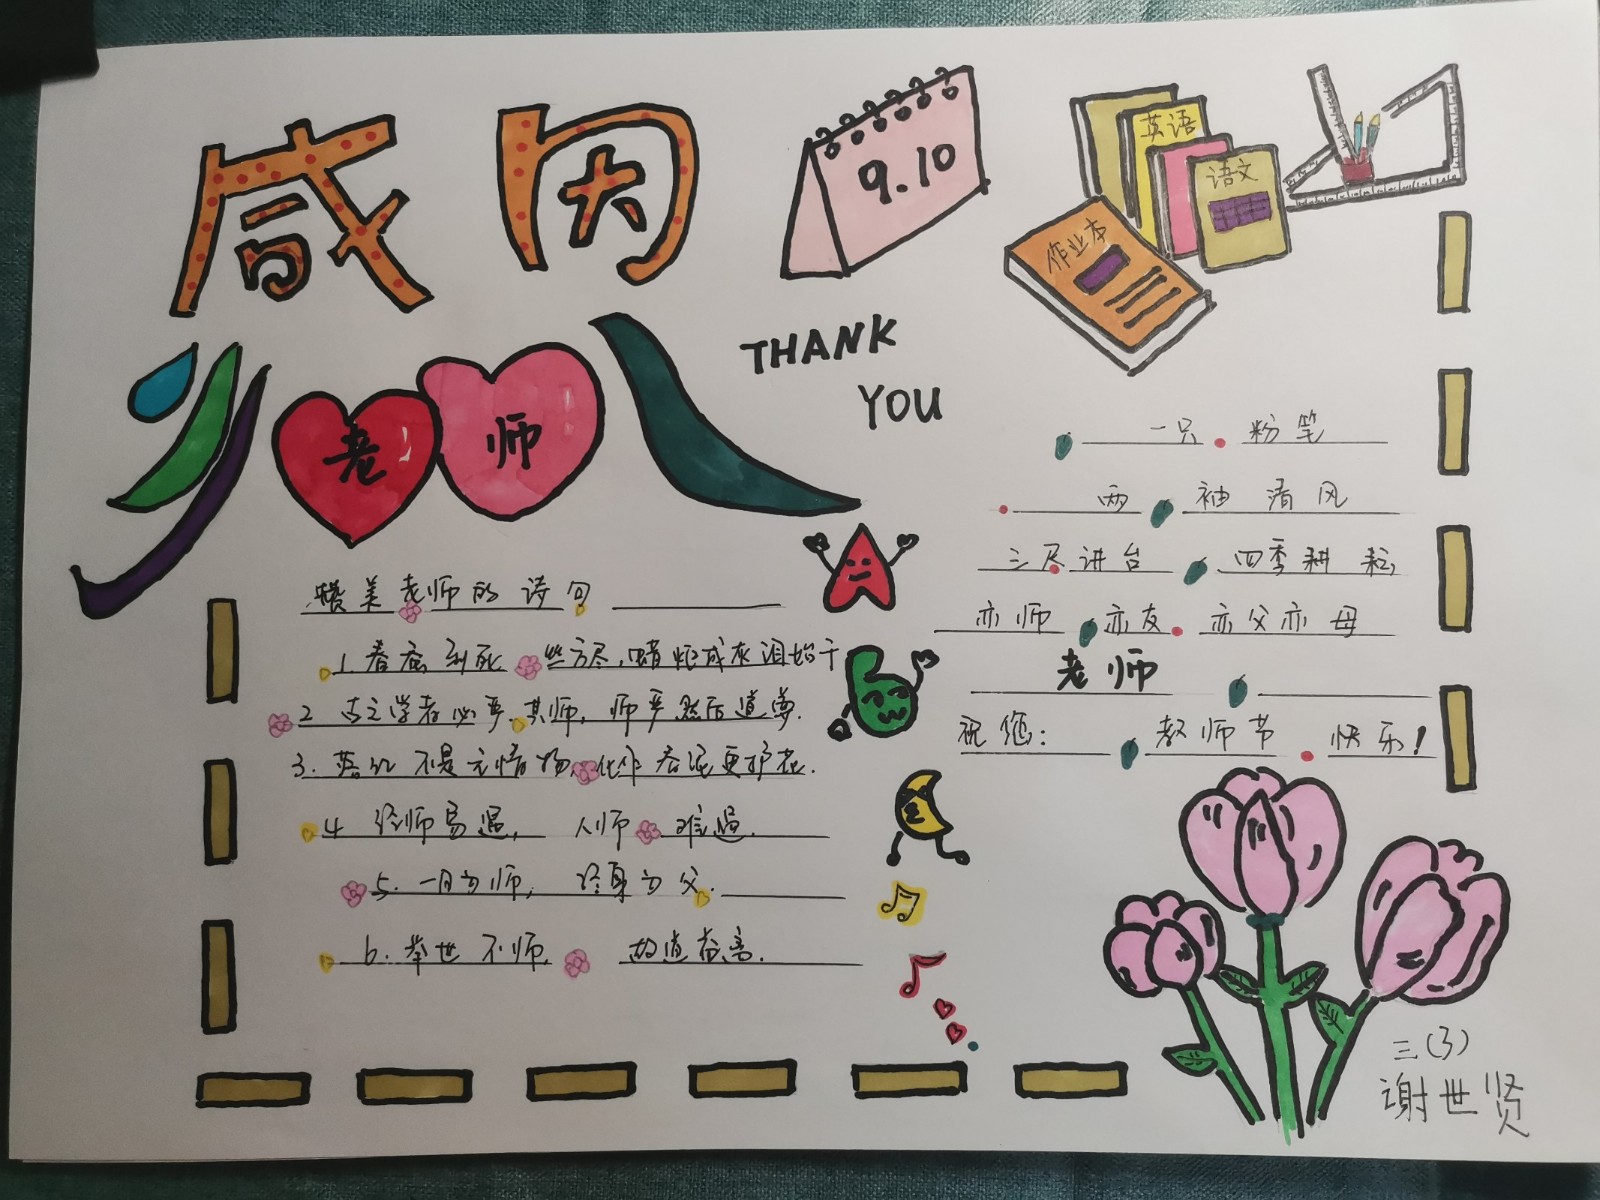 感恩
老师
9.10
THANK
YOU
英语
语文
作业本
赞美老师的诗句
1.春蚕到死丝方尽,蜡炬成灰泪始干
2 古之学者必严其师,师严然后道尊.
3.落红不是无情物,化作春泥更护花.
4 经师易遇,人师难遇.
5.一日为师,终身为父.
6.举世不师,故道益离.
一只粉笔
两袖清风
三尺讲台 四季耕耘
亦师亦友亦父亦母
老师
祝您: 教师节快乐!
三(3)
谢世贤